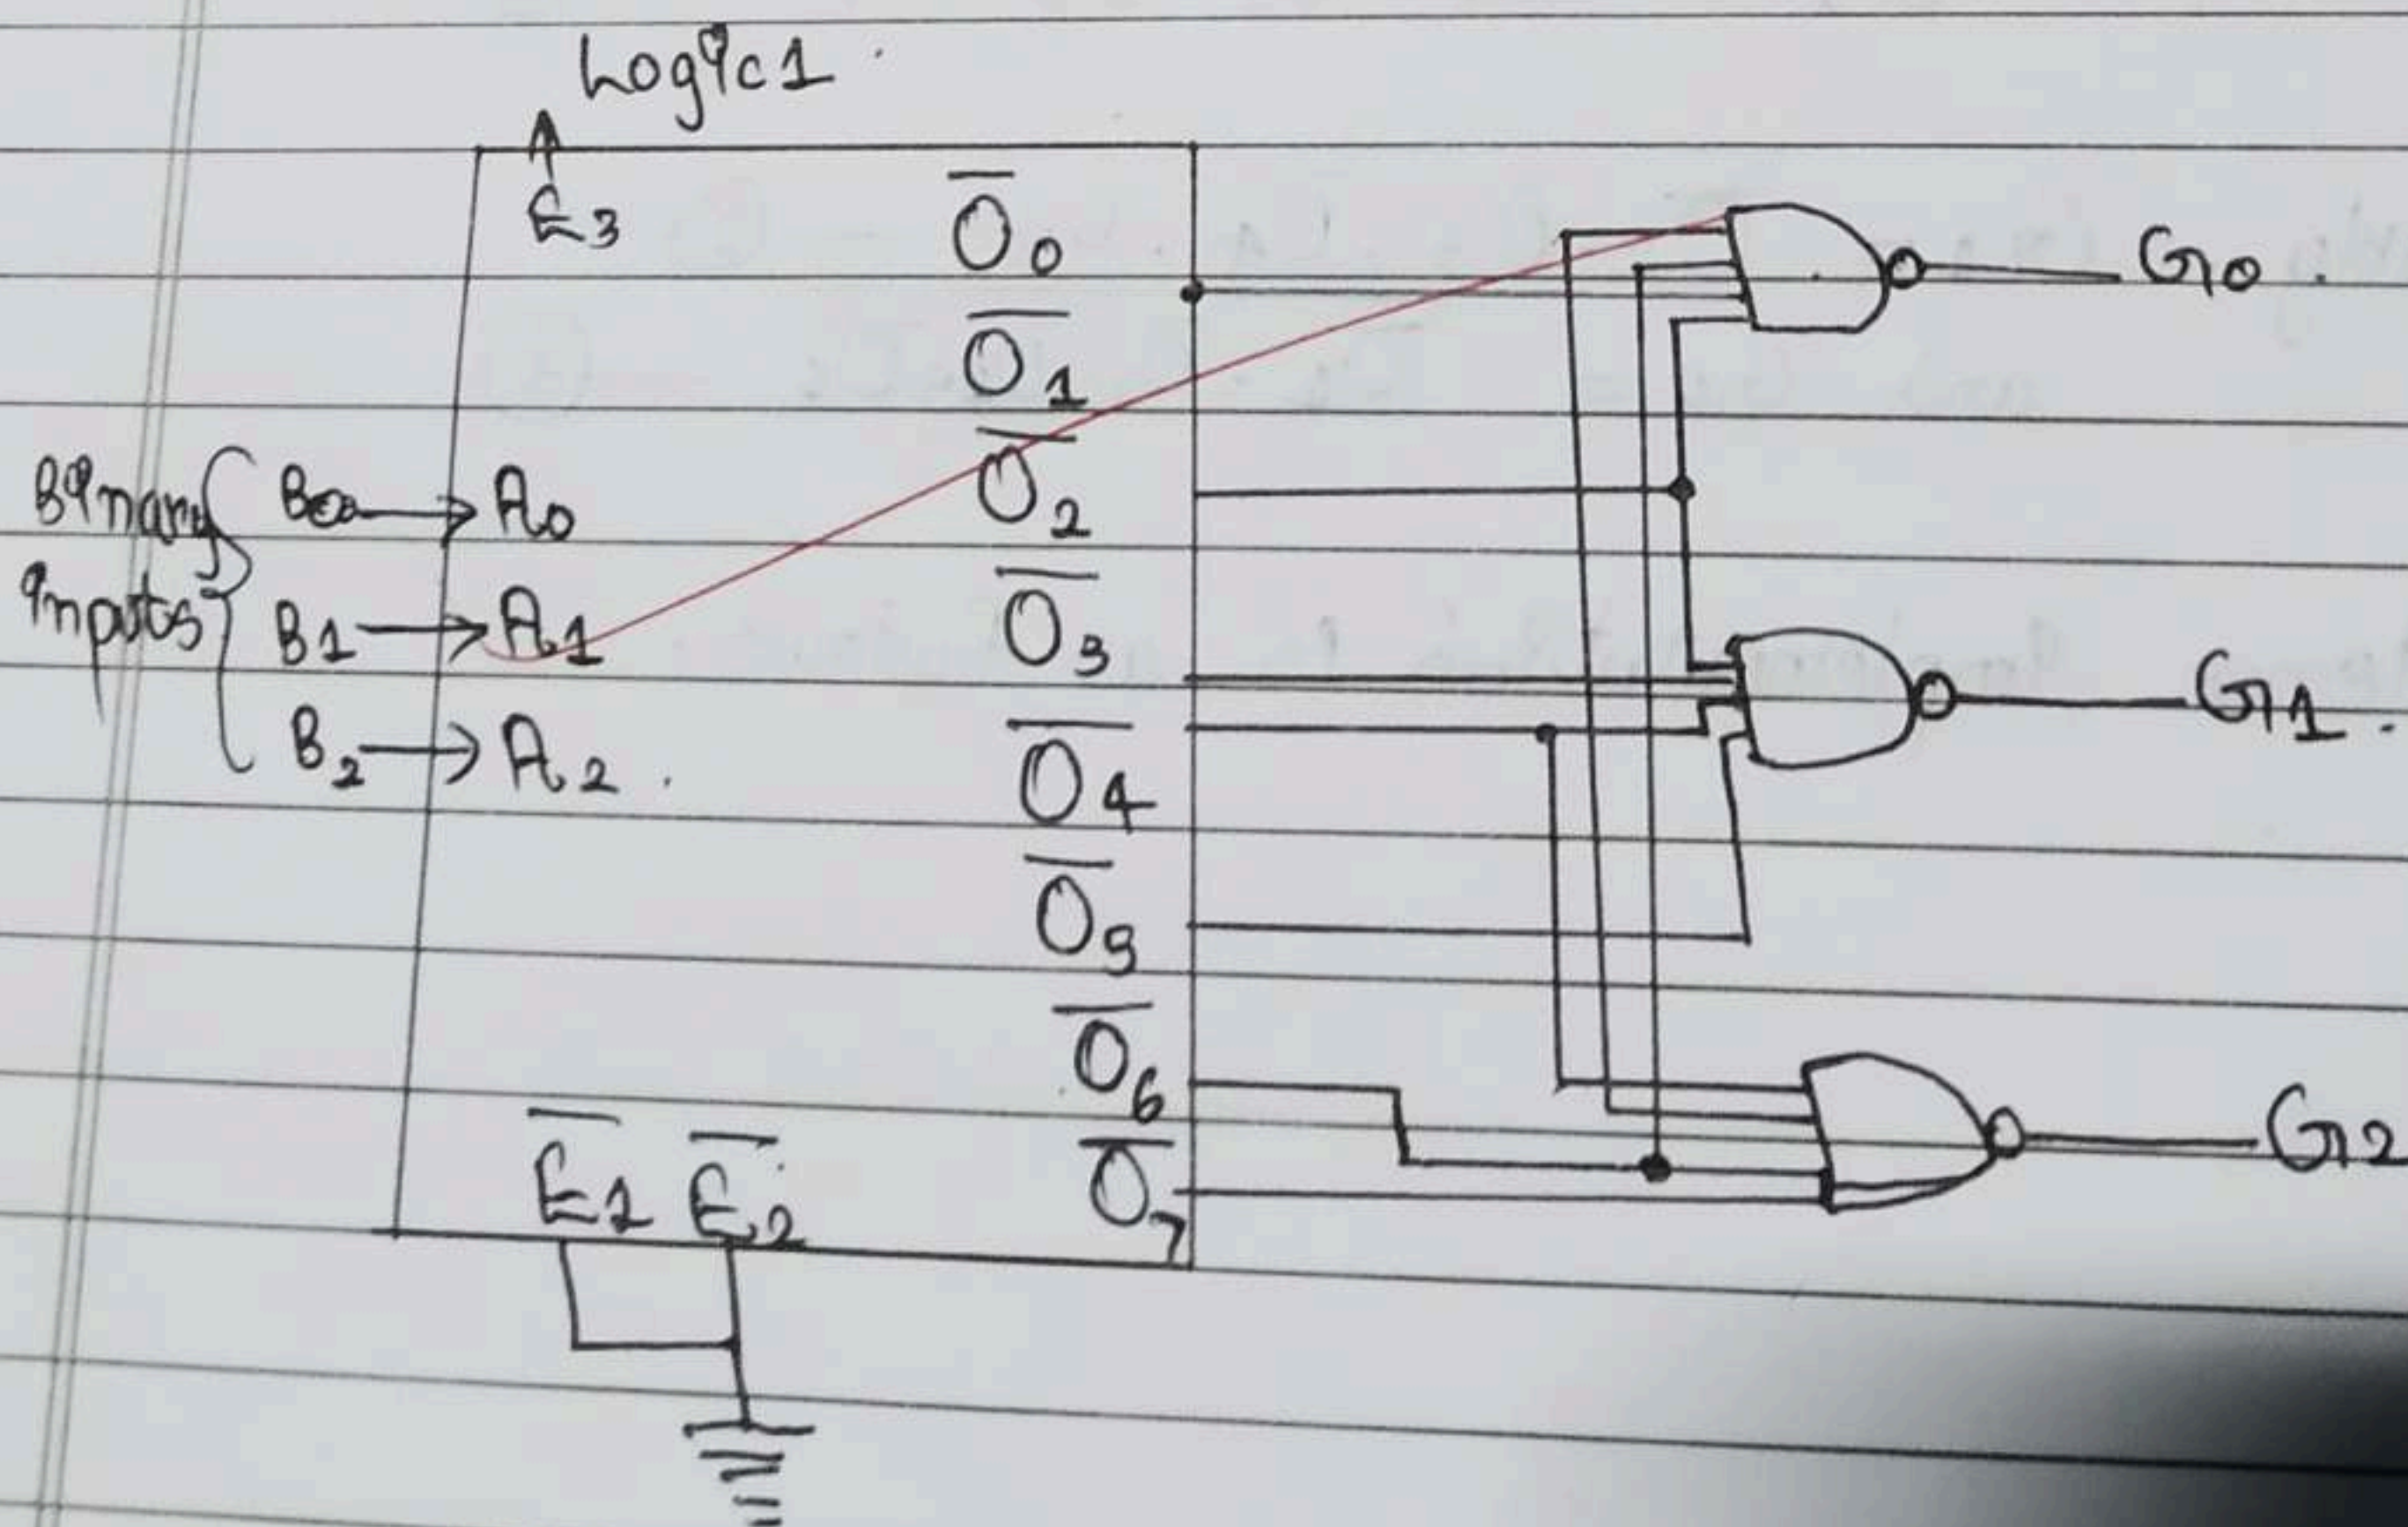 Logic1
E3
O̅0
O̅1
O̅2
O̅3
O̅4
O̅5
O̅6
O̅7
Binary
inputs
B0 → A0
B1 → A1
B2 → A2
E̅1 E̅2
G0
G1
G2